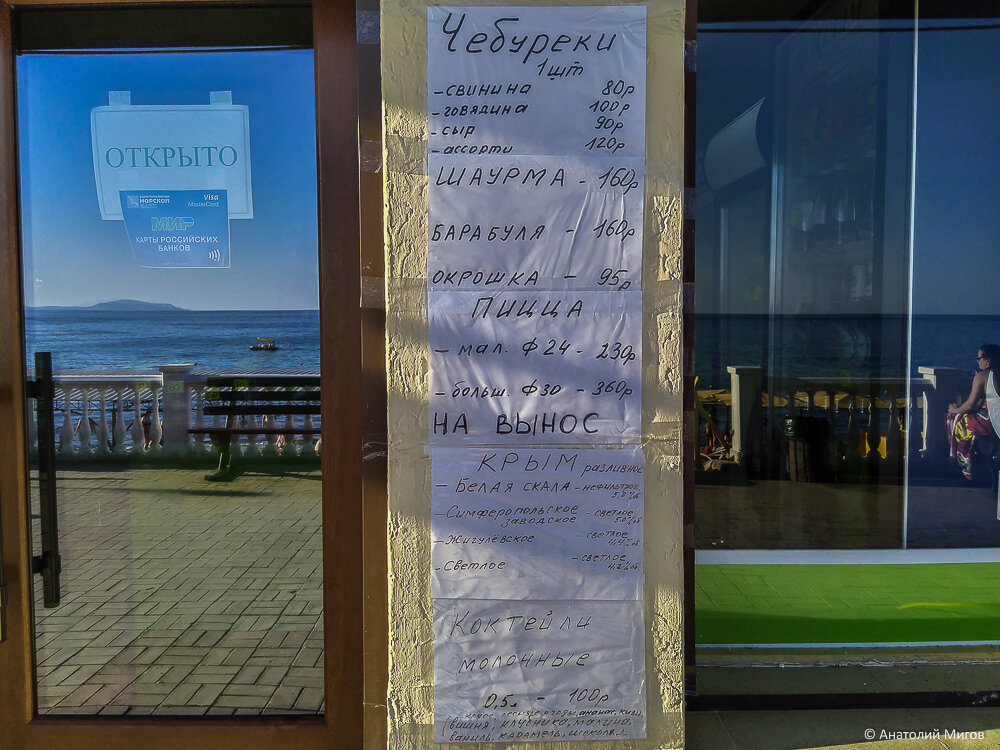 ОТКРЫТО
МОРСКОЙ
Visa
MasterCard
МИР
КАРТЫ РОССИЙСКИХ
БАНКОВ
Чебуреки
1шт
-свинина 80р
-говядина 100р
-сыр 90р
-ассорти 120р
ШАУРМА - 160р
БАРАБУЛЯ - 160р
ОКРОШКА - 95р
ПИЦЦА
- мал. ф 24 - 230р
- больш. ф 30 - 360р
НА ВЫНОС
КРЫМ разливное
- БЕЛАЯ СКАЛА - нефильтров.
- Симферопольское - светлое
заводское
- Жигулёвское - светлое
- Светлое - светлое
Коктейли
молочные
0,5л - 100р
ананас, киви,
(вишня, клубника, малина,
ваниль, карамель, шоколад
© Анатолий Мигов